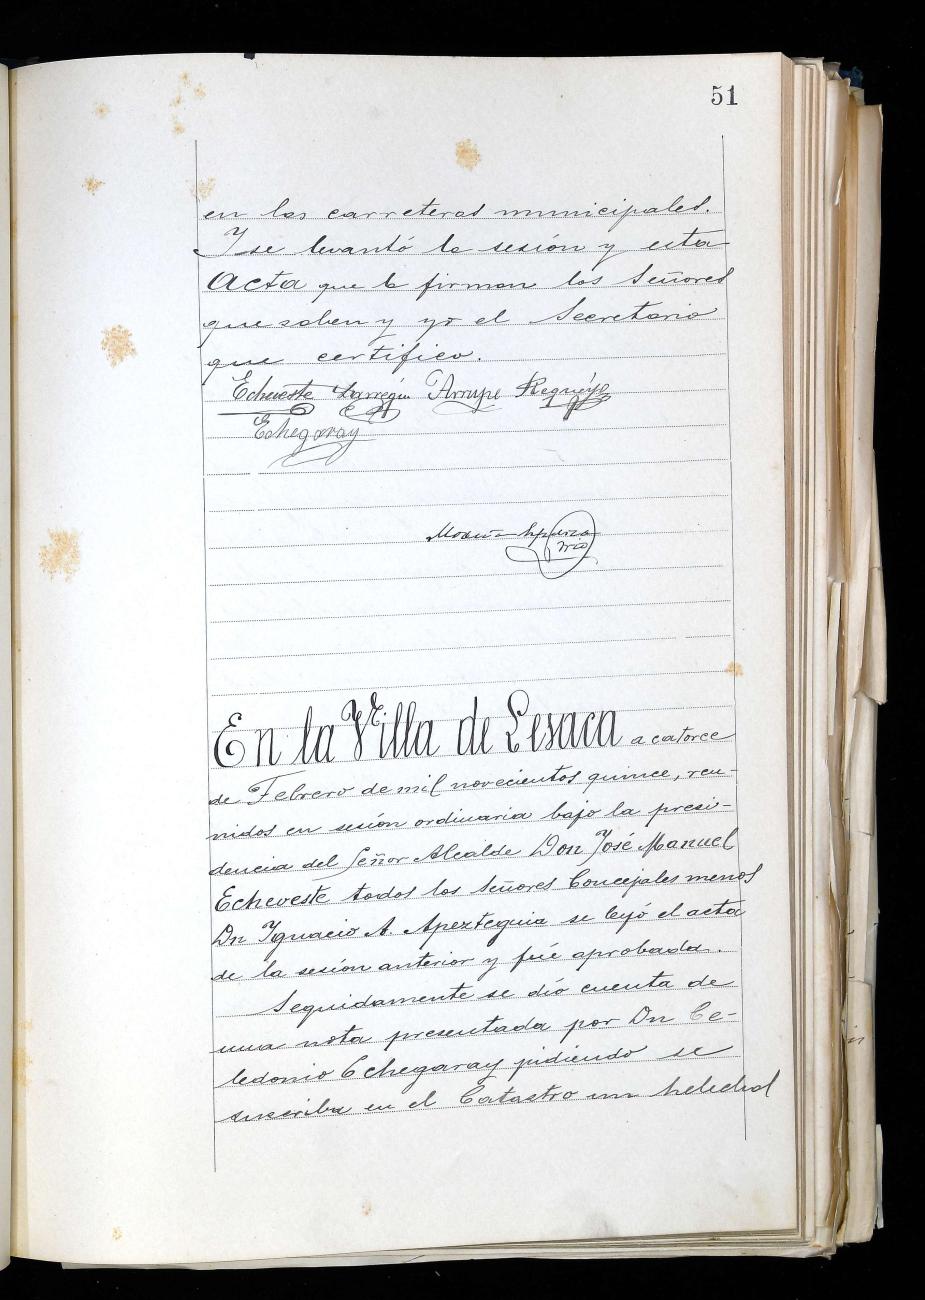 51
en las carreteras municipales.
Y se levantó la sesión y esta
Acta que la firman los Señores
que saben y yo el Secretario
que certifico.
Echeveste Larregui Arrupe Requejo
Echegaray
En la Villa de Lesaca a catorce
de Febrero de mil novecientos quince, reu-
nidos en sesión ordinaria bajo la presi-
dencia del Señor Alcalde Don José Manuel
Echeveste todos los Señores Concejales menos
Dn Ygnacio A. Apezteguia se leyó el acta
de la sesión anterior y fué aprobada.
Seguidamente se dió cuenta de
una nota presentada por Dn Ce-
ledonio Echegaray pidiendo se
suscriba en el Catastro un helechal